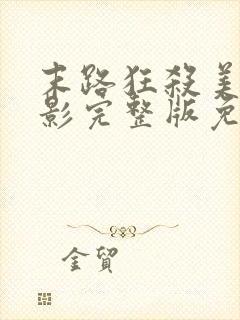 末路狂殺美
影完整版免
金貿